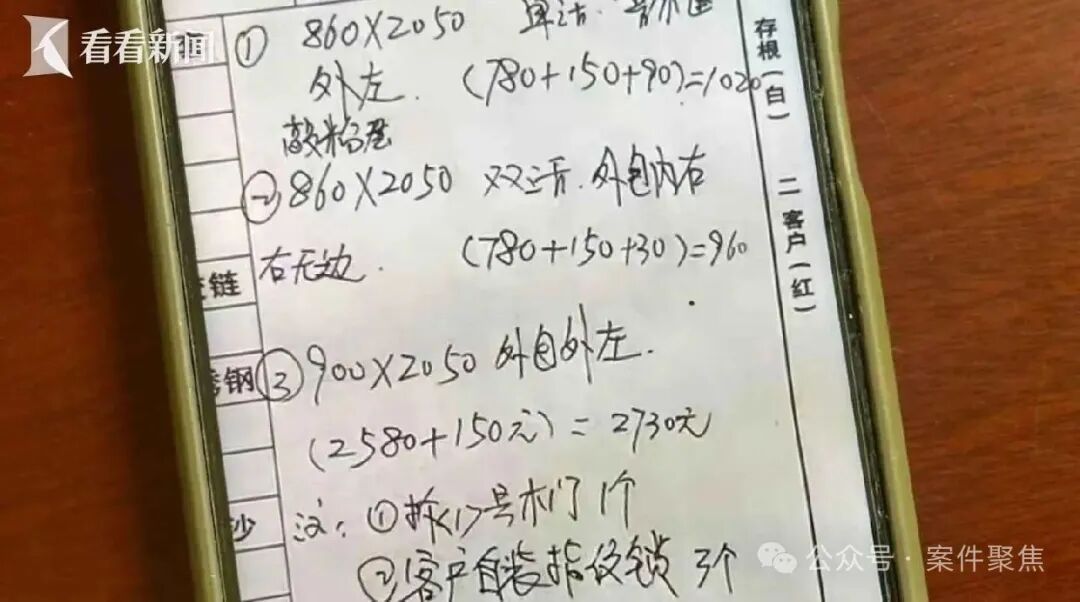 看看新闻
① 860X2050
外左. (780+150+90)=1020
② 860X2050 双舌. 外包内右
右无边. (780+150+30)=960
链
③ 900X2050 外包外左.
钢
(2580+150元) = 2730元
沙
注: ①拆<1>号木门 1个
②客户自装指纹锁 3个
存根(白) 二客户(红)
公众号·案件聚焦